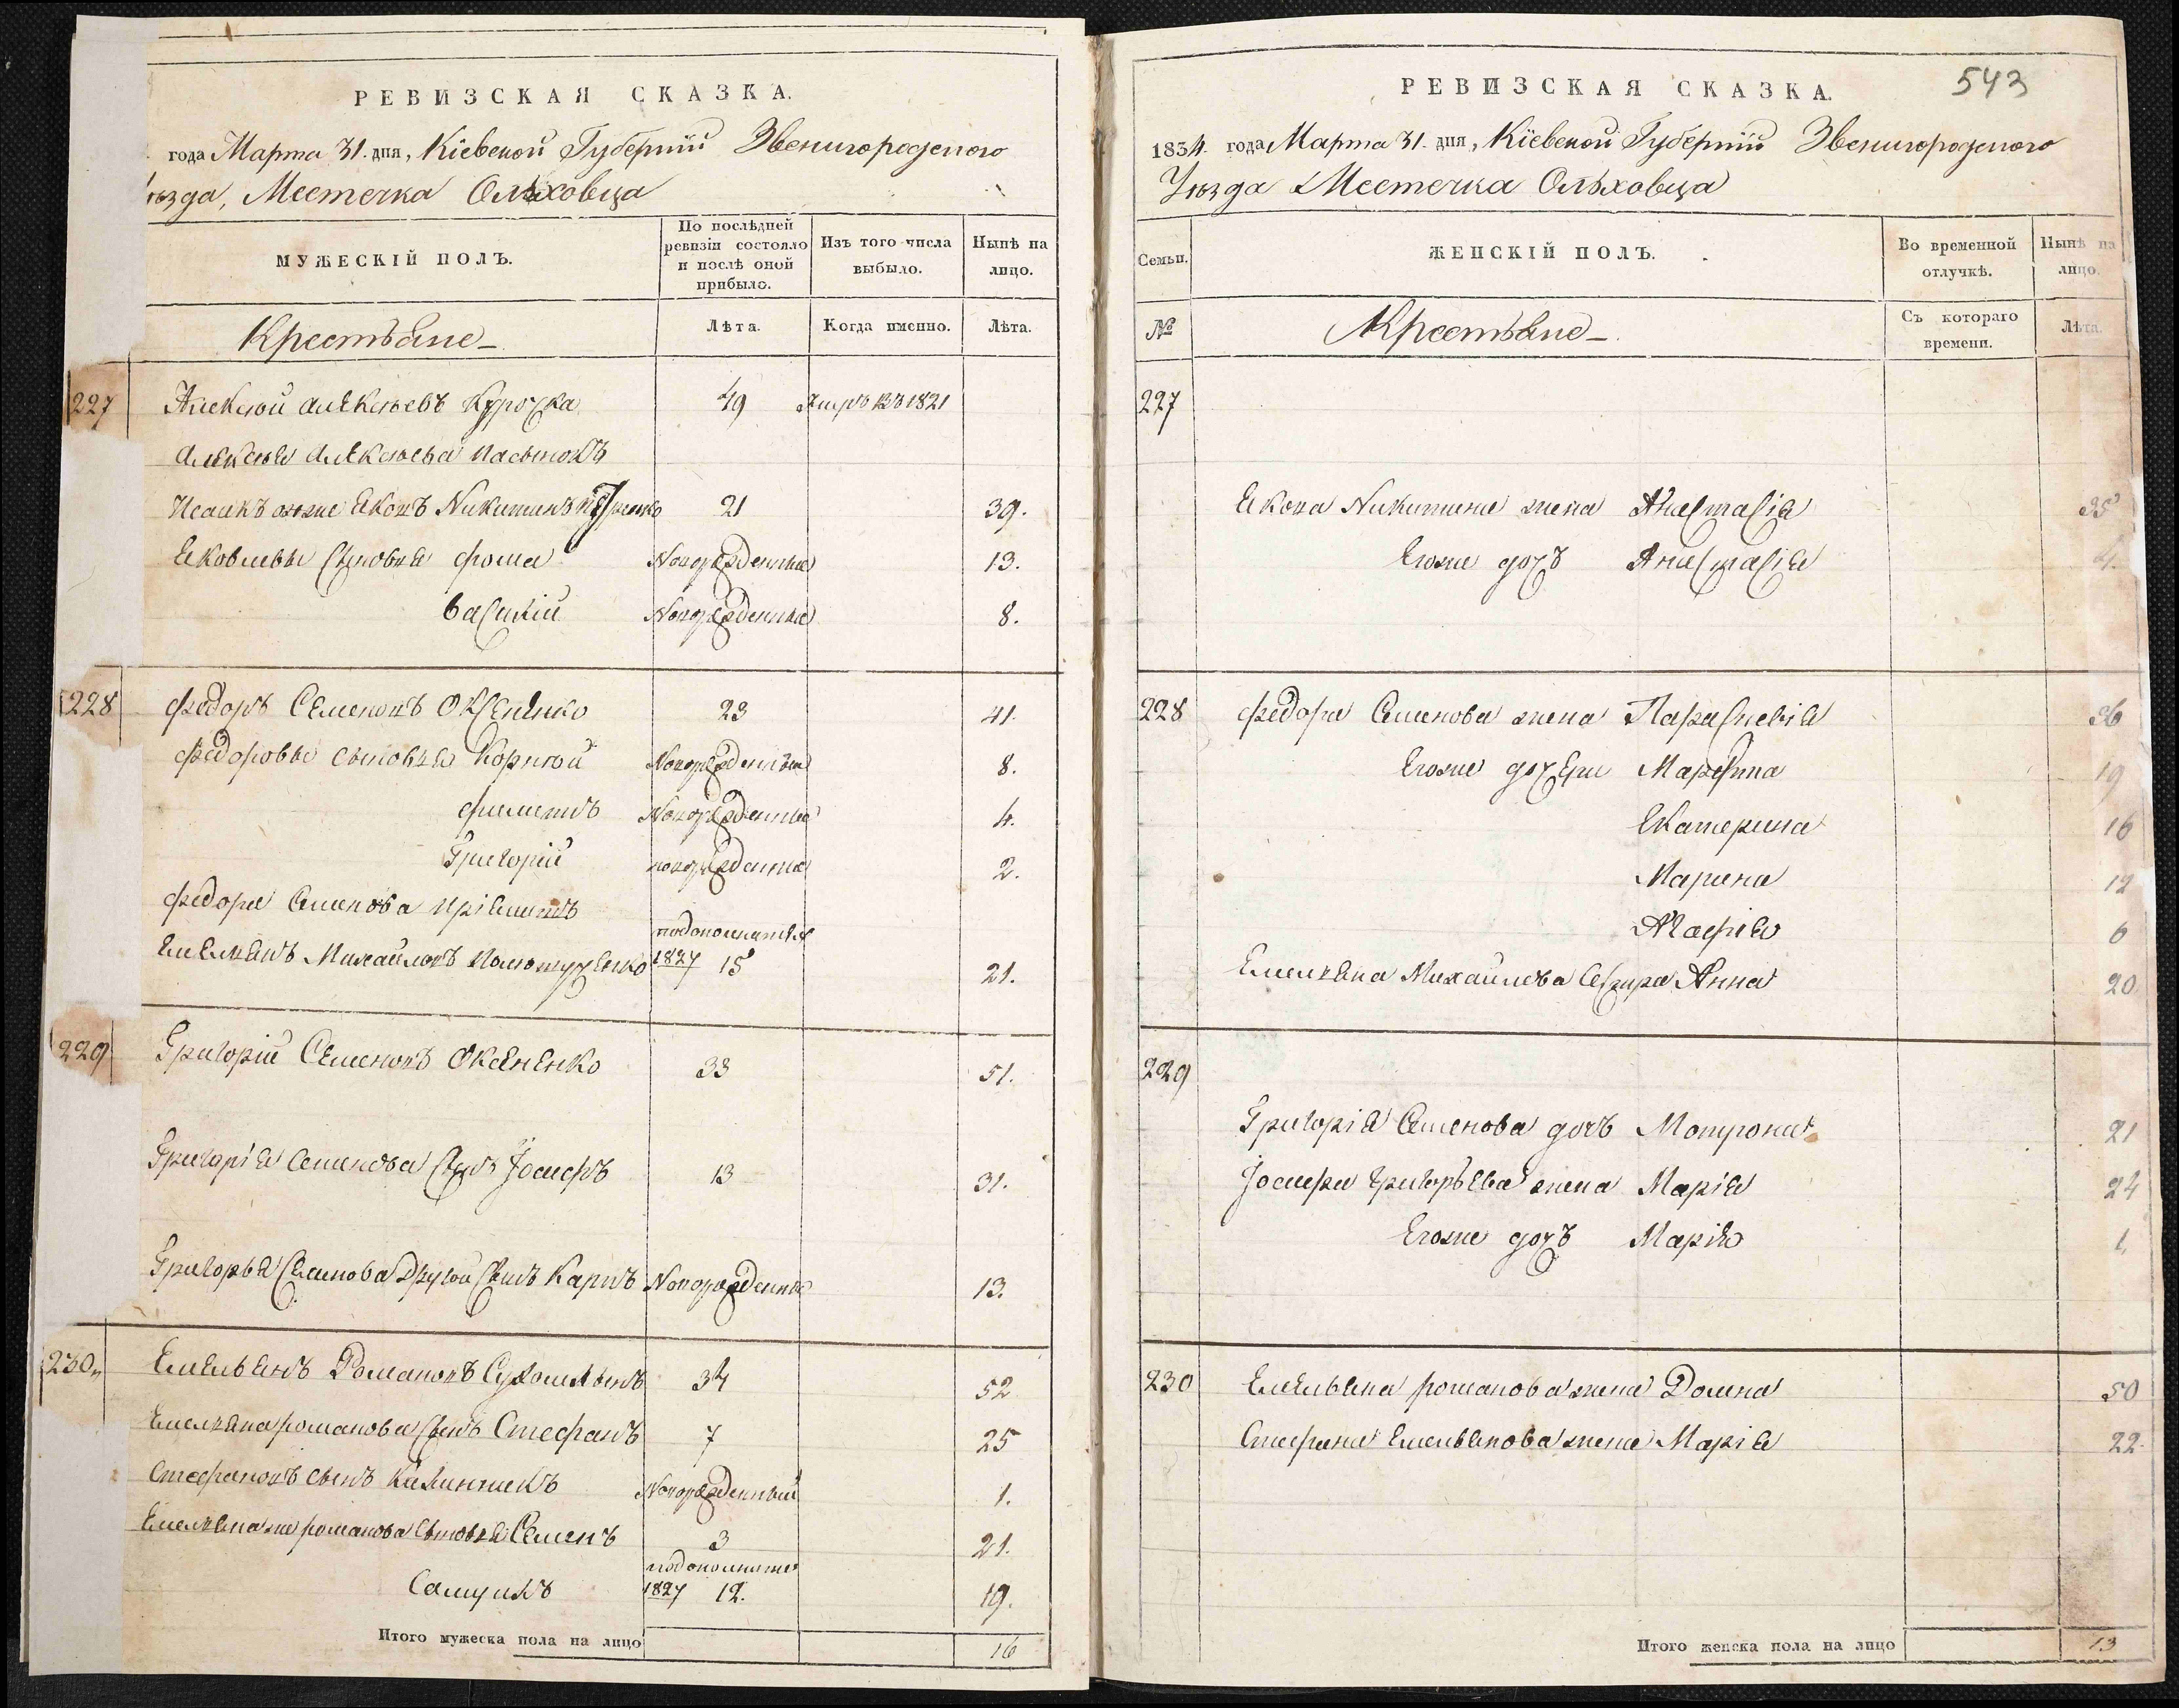 РЕВИЗСКАЯ СКАЗКА.
года Марта 31. дня, Кіевской Губерніи Звенигородскаго
ѣзда, Местечка Ольховца
МУЖЕСКІЙ ПОЛЪ.
По послѣдней ревизіи состояло и послѣ оной прибыло.
Изъ того числа выбыло.
Нынѣ на лицо.
Крестьяне
Лѣта.
Когда именно.
Лѣта.
227 Алексѣй Алексѣевъ 49 Умръ въ 1821
Алексѣя Алексѣева пасынокъ
Исаакъ онже Яковъ Никитинъ 21 39.
Яковлевы Сыновья Фома Новорожденные 13.
Василій Новорожденные 8.
228 Федоръ Семеновъ Оксененко 23 41.
Федоровы сыновья Корнѣй Новорожденные 8.
Филипъ Новорожденные 4.
Григорій новорожденные 2.
Федора Семенова пріемышъ
Емельянъ Михайловъ 1827 15 21.
229 Григорій Семеновъ Оксененко 33 51.
Григорія Семенова Сынъ Іосифъ 13 31.
Григорья Семенова другой Сынъ Карпъ Новорожденные 13.
230 Емельянъ Романовъ 34 52
Емельяна романова Сынъ Стефанъ 7 25
Стефановъ сынъ Новорожденный 1.
Емельяна же романова Сыновья Семенъ 3 21.
Самуилъ 1827 12. 19.
Итого мужеска пола на лицо 16
РЕВИЗСКАЯ СКАЗКА.
543
1834. года Марта 31. дня, Кіевской Губерніи Звенигородскаго
Уѣзда Местечка Ольховца
Семьи.
ЖЕНСКІЙ ПОЛЪ.
Во временной отлучкѣ.
Нынѣ на лицо.
№
Крестьяне
Съ котораго времени.
Лѣта.
227
Якова Никитина жена Анастасія 35
Егоже дочь Анастасія 4.
228 Федора Семенова жена Парасковія 36
Егоже дочери Марфина 19
Екатерина 16
Марина 12
Агафія 6
Емельяна Михайлова Сестра Анна 20
229
Григорія Семенова дочь Мотрона 21
Іосифа Григорьева жена Марія 24
Егоже дочь Марія 1.
230 Емельяна романова жена Домна 50
Стефана Емельянова жена Марія 22.
Итого женска пола на лицо 13